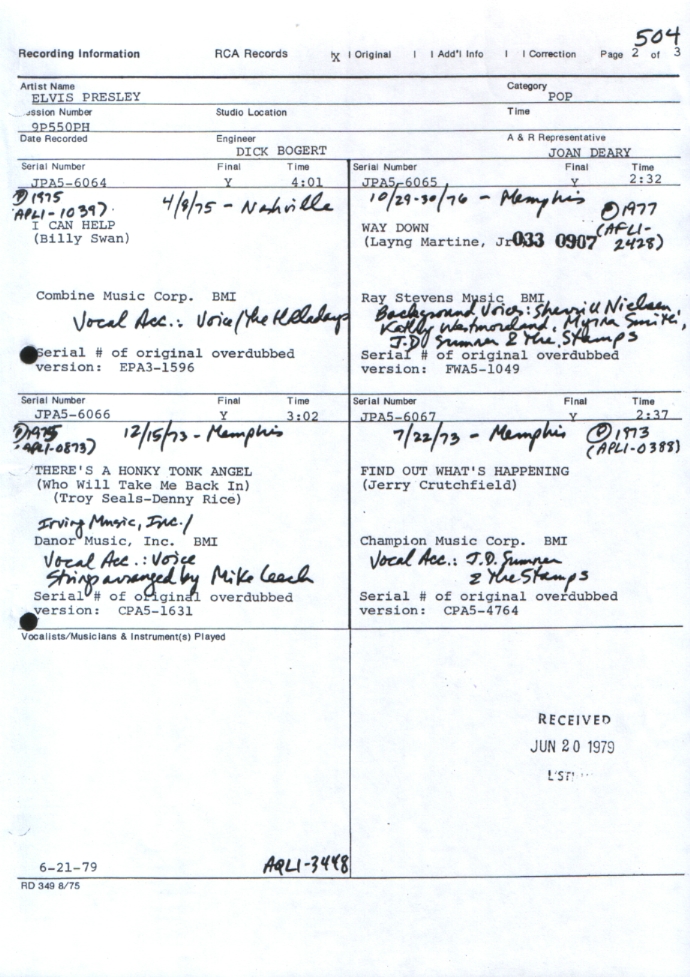 504
Recording Information RCA Records X | Original | | Add'l Info | | Correction Page 2 of 3
Artist Name Category
ELVIS PRESLEY POP
ssion Number Studio Location Time
9P550PH
Date Recorded Engineer A & R Representative
DICK BOGERT JOAN DEARY
Serial Number Final Time
JPA5-6064 Y 4:01
Ⓟ1975 4/8/75 - Nashville
APL1-1039)
I CAN HELP
(Billy Swan)
Combine Music Corp. BMI
Vocal Acc.: Voice/The Holladays
Serial # of original overdubbed
version: EPA3-1596
Serial Number Final Time
JPA5-6065 Y 2:32
10/29-30/76 - Memphis Ⓟ1977
WAY DOWN (AFL1-
(Layng Martine, Jr 033 0907 2428)
Ray Stevens Music BMI
Background Voices: Sherrill Nielsen,
Kathy Westmoreland, Myrna Smith,
J.D. Sumner & The Stamps
Serial # of original overdubbed
version: FWA5-1049
Serial Number Final Time
JPA5-6066 Y 3:02
Ⓟ1975 12/15/73 - Memphis
APL1-0873)
THERE'S A HONKY TONK ANGEL
(Who Will Take Me Back In)
(Troy Seals-Denny Rice)
Irving Music, Inc./
Danor Music, Inc. BMI
Vocal Acc.: Voice
Strings arranged by Mike Leech
Serial # of original overdubbed
version: CPA5-1631
Serial Number Final Time
JPA5-6067 Y 2:37
7/22/73 - Memphis Ⓟ1973
(APL1-0388)
FIND OUT WHAT'S HAPPENING
(Jerry Crutchfield)
Champion Music Corp. BMI
Vocal Acc.: J.D. Sumner
& The Stamps
Serial # of original overdubbed
version: CPA5-4764
Vocalists/Musicians & Instrument(s) Played
RECEIVED
JUN 20 1979
6-21-79 AQL1-3448
RD 349 8/75